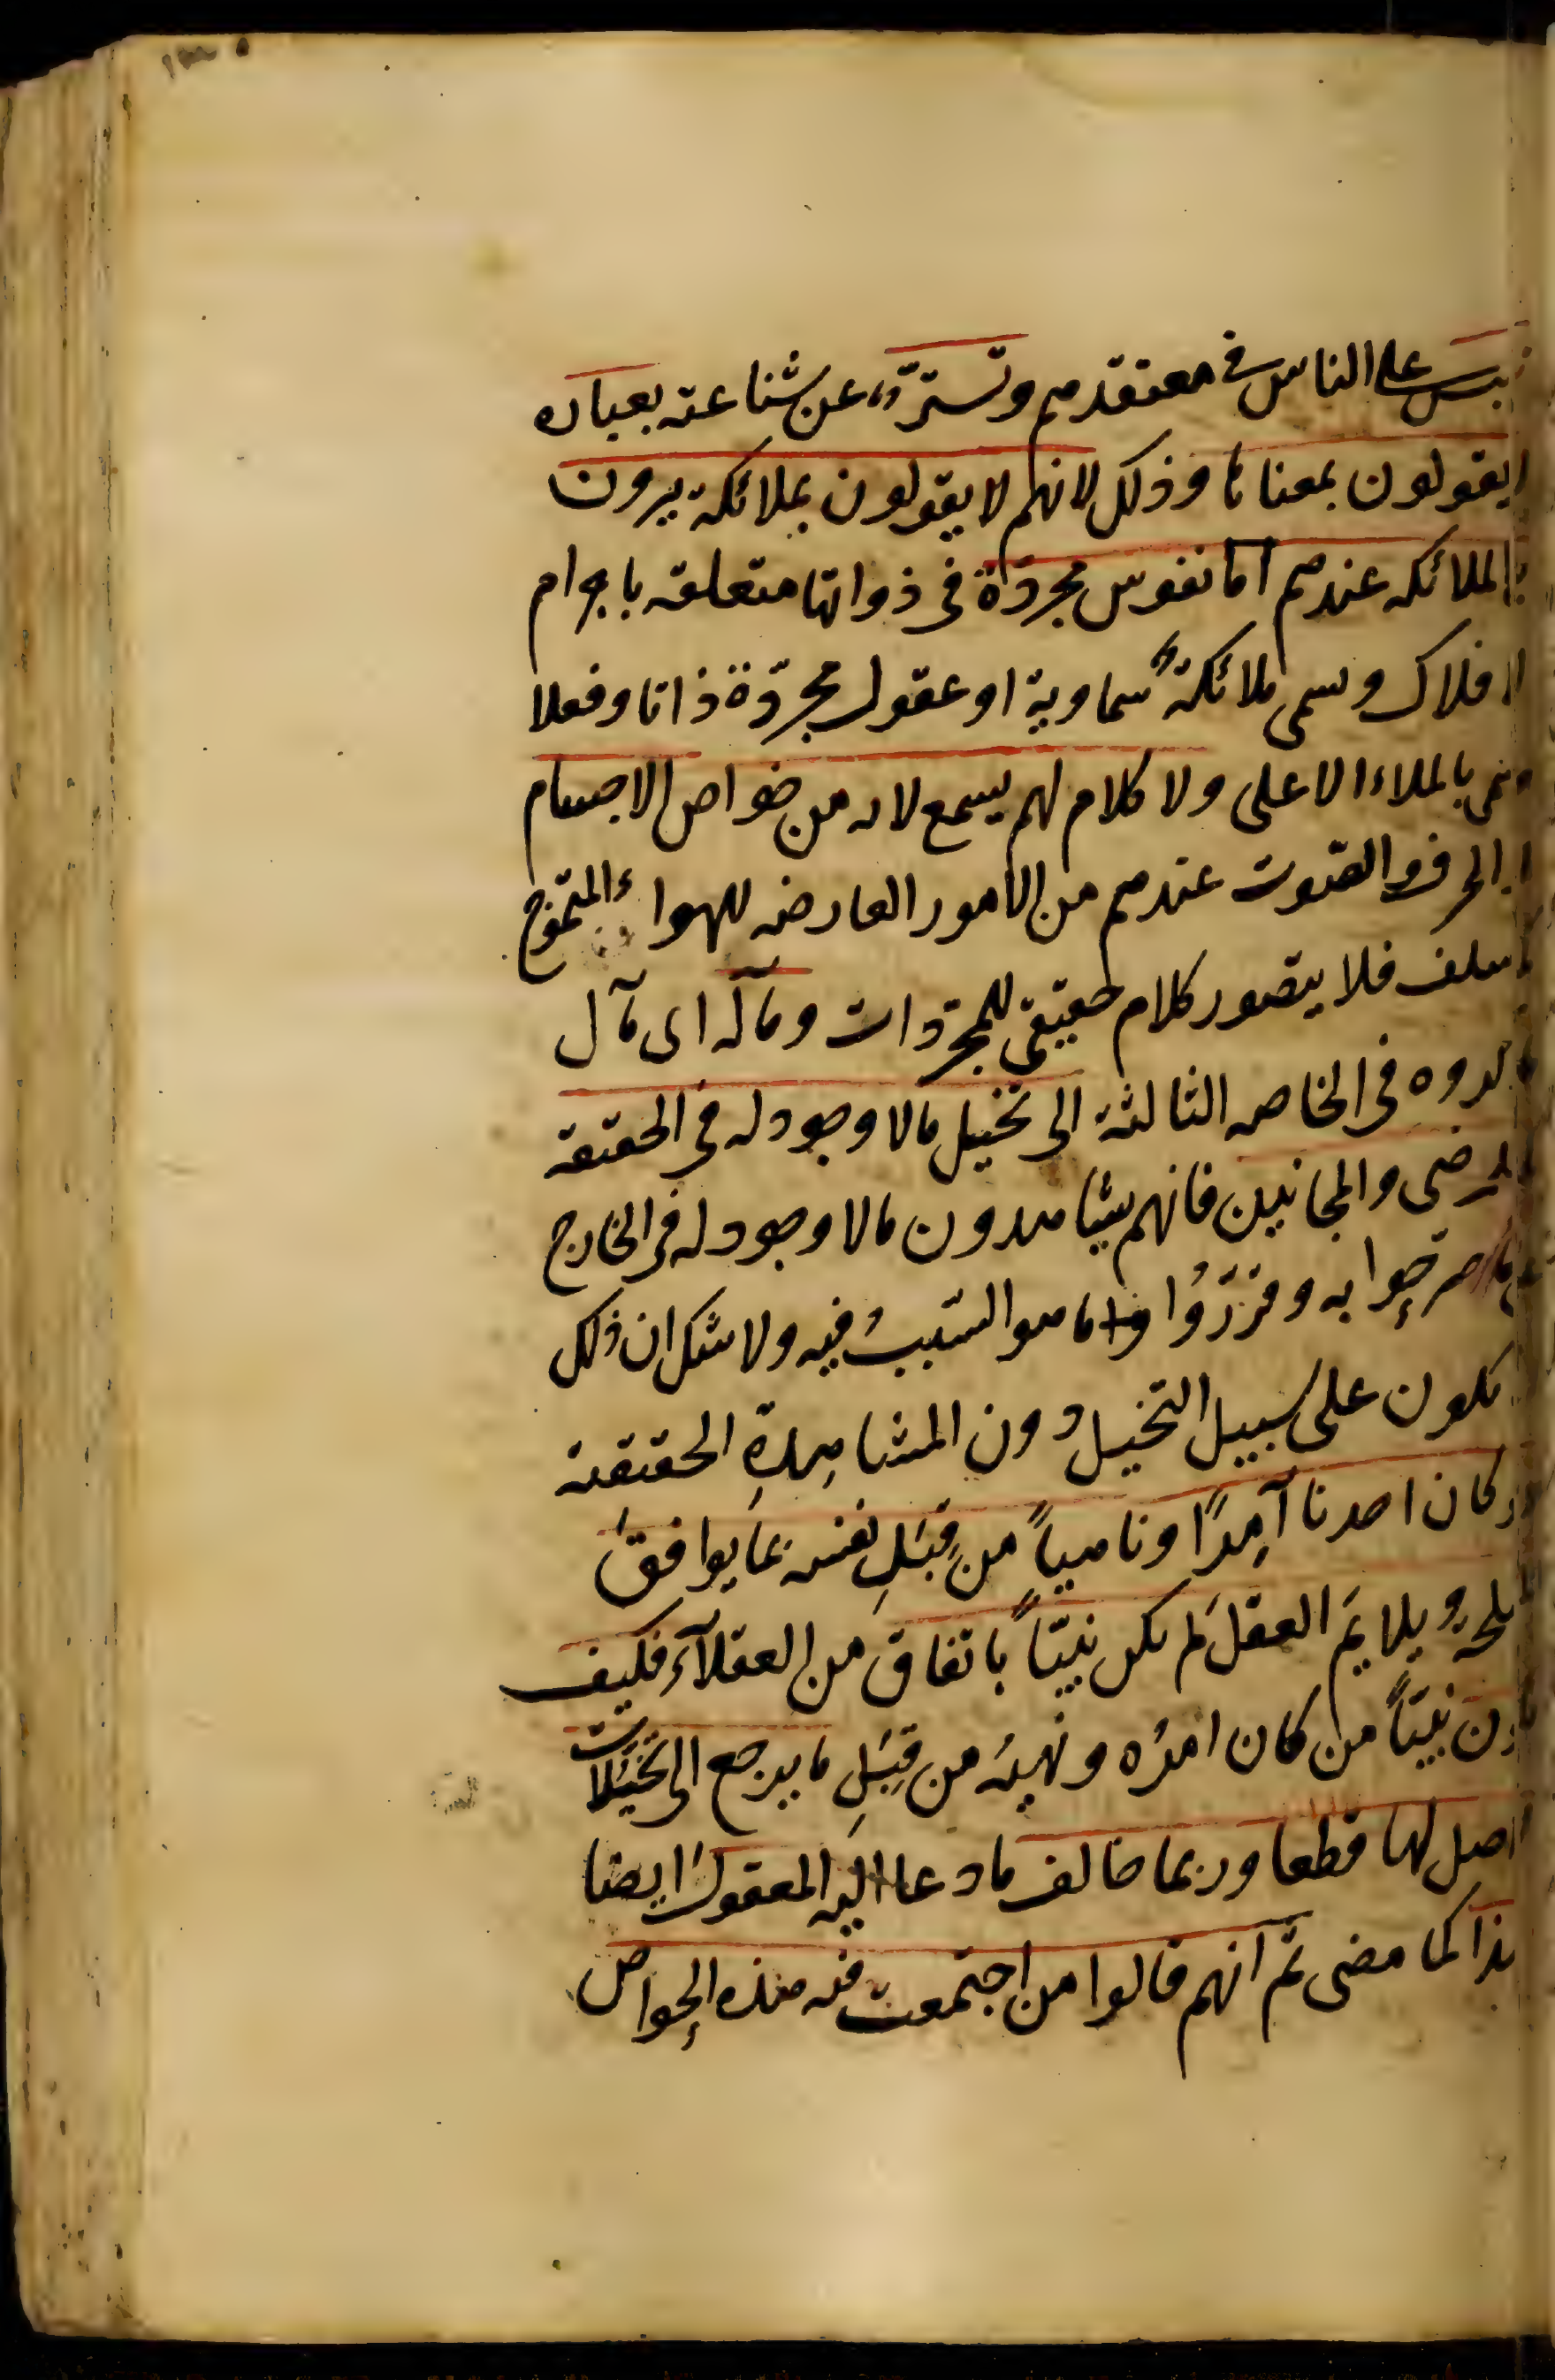 على الناس فى معتقدهم وتستر عن شناعته بعباره
يقولون بمعناها وذلك لانهم لا يقولون بملائكة يرون
الملائكه عندهم اما نفوس مجردة فى ذواتها متعلقه باجرام
الافلاك وسمى ملائكةً سماوية او عقول مجرّدة ذاتا وفعلا
بالملاء الاعلى ولا كلام لهم يسمع لانه من خواص الاجسام
الحرف والصّوت عندهم من الامور العارضه للهواء المتموّج
سلف فلا يتصور كلام حقيقى للمجرّدات ومآله اى مآل
فى الخاصه الثالثة الى تخيل مالا وجود له فى الحقيقه
والمجانين فانهم يشاهدون مالا وجود له فى الخارج
صرّحوا به وقرّرُوا ما هو السّببُ فيه ولا شك ان ذلك
يكون على سبيل التخيل دون المشاهِدةِ الحقيقية
كان احدنا آمِرًا وناهياً من قِبَلِ نفسه بما يوافق
ويلايمَ العقلَ لم يكن نبيّاً باتفاق من العقلآءِ فكيف
نبيّاً من كان امرُه ونهيُه من قِبَلِ ما يرجع الى تخيّلات
اصل لها قطعا وربما خالف ما دعا اليه المعقولُ ايضا
هذا كما مضى ثم انهم قالوا من اجتمعت فيه هذه الخواص